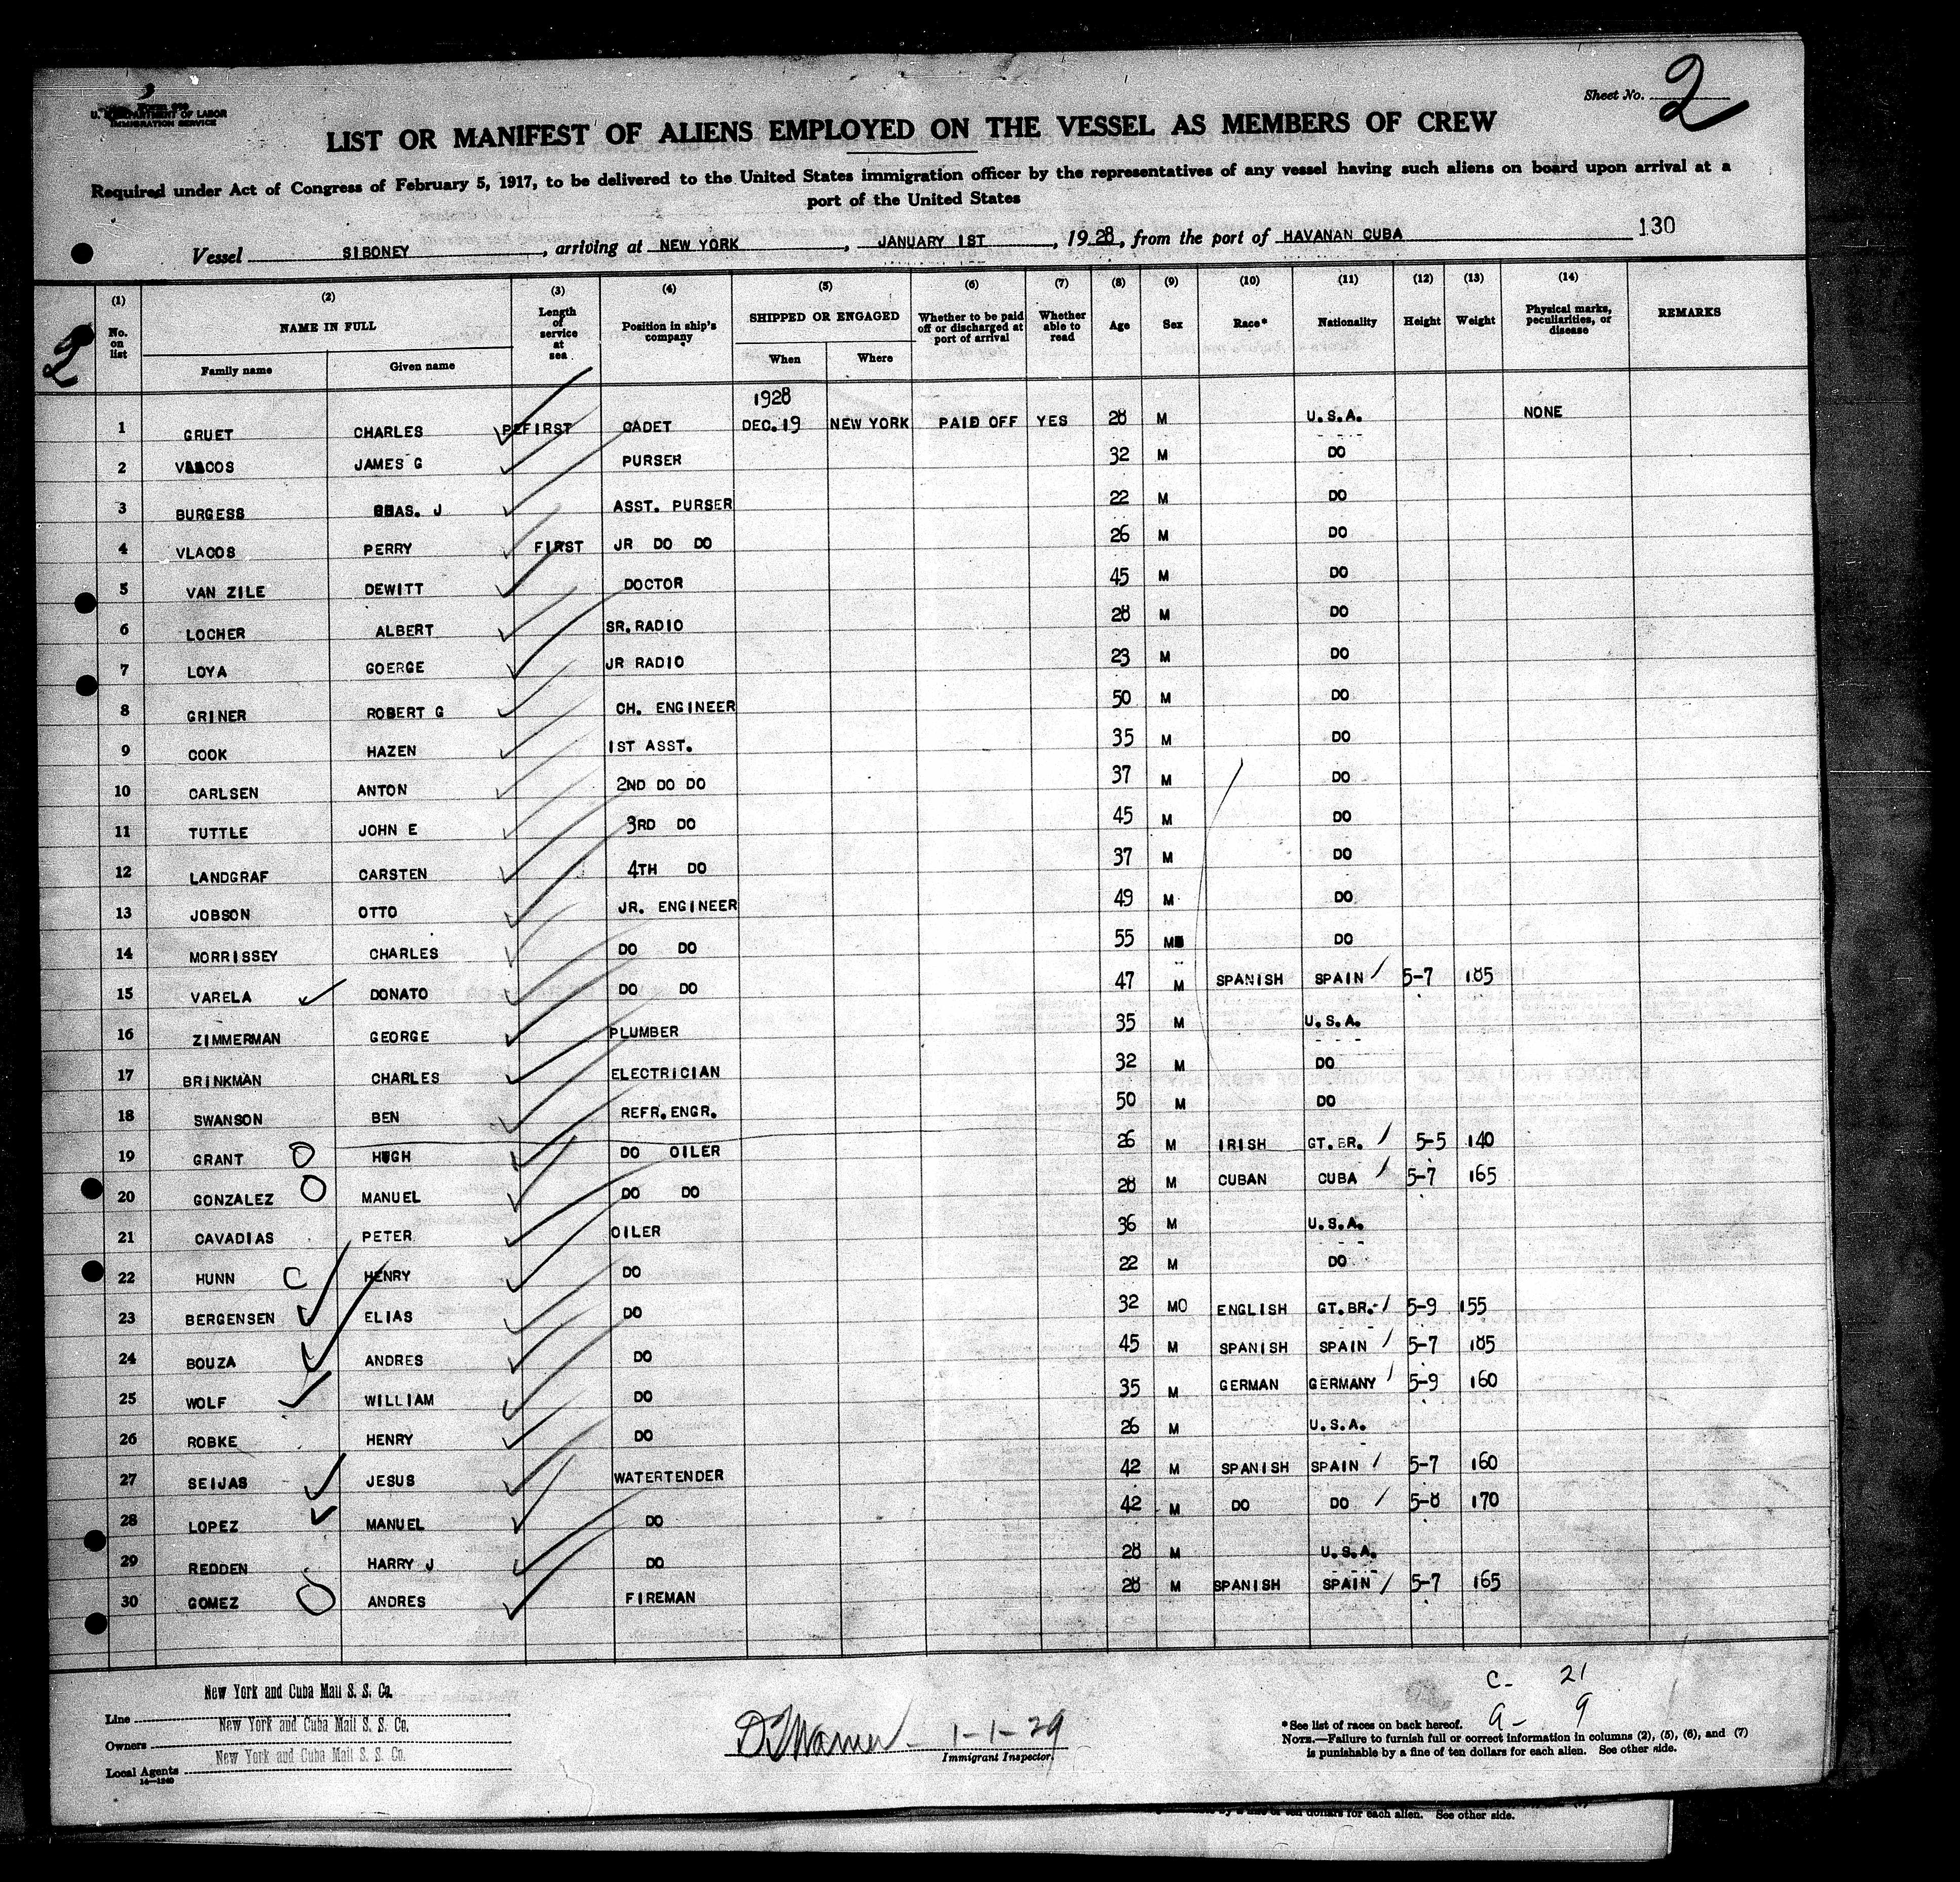 Sheet No. 2
U. S. DEPARTMENT OF LABOR
IMMIGRATION SERVICE
LIST OR MANIFEST OF ALIENS EMPLOYED ON THE VESSEL AS MEMBERS OF CREW
Required under Act of Congress of February 5, 1917, to be delivered to the United States immigration officer by the representatives of any vessel having such aliens on board upon arrival at a
port of the United States
Vessel SIBONEY, arriving at NEW YORK, JANUARY 1ST, 1928, from the port of HAVANAN CUBA 130
2
(1) (2) (3) (4) (5) (6) (7) (8) (9) (10) (11) (12) (13) (14)
No. on list NAME IN FULL Length of service at sea Position in ship's company SHIPPED OR ENGAGED Whether to be paid off or discharged at port of arrival Whether able to read Age Sex Race* Nationality Height Weight Physical marks, peculiarities, or disease REMARKS
Family name Given name When Where
1928
1 GRUET CHARLES FIRST CADET DEC. 19 NEW YORK PAID OFF YES 28 M U.S.A. NONE
2 JAMES G PURSER 32 M DO
3 BURGESS CHAS. J ASST. PURSER 22 M DO
4 VLACOS PERRY FIRST JR DO DO 26 M DO
5 VAN ZILE DEWITT DOCTOR 45 M DO
6 LOCHER ALBERT SR. RADIO 28 M DO
7 LOYA GOERGE JR RADIO 23 M DO
8 GRINER ROBERT G CH. ENGINEER 50 M DO
9 COOK HAZEN 1ST ASST. 35 M DO
10 CARLSEN ANTON 2ND DO DO 37 M DO
11 TUTTLE JOHN E 3RD DO 45 M DO
12 LANDGRAF CARSTEN 4TH DO 37 M DO
13 JOBSON OTTO JR. ENGINEER 49 M DO
14 MORRISSEY CHARLES DO DO 55 M DO
15 VARELA DONATO DO DO 47 M SPANISH SPAIN 5-7 185
16 ZIMMERMAN GEORGE PLUMBER 35 M U.S.A.
17 BRINKMAN CHARLES ELECTRICIAN 32 M DO
18 SWANSON BEN REFR. ENGR. 50 M DO
19 GRANT HUGH DO OILER 26 M IRISH GT. BR. 5-5 140
20 GONZALEZ MANUEL DO DO 28 M CUBAN CUBA 5-7 165
21 CAVADIAS PETER OILER 36 M U.S.A.
22 HUNN C HENRY DO 22 M DO
23 BERGENSEN ELIAS DO 32 MO ENGLISH GT. BR. 5-9 155
24 BOUZA ANDRES DO 45 M SPANISH SPAIN 5-7 185
25 WOLF WILLIAM DO 35 M GERMAN GERMANY 5-9 160
26 ROBKE HENRY DO 26 M U.S.A.
27 SEIJAS JESUS WATERTENDER 42 M SPANISH SPAIN 5-7 160
28 LOPEZ MANUEL DO 42 M DO DO 5-8 170
29 REDDEN HARRY J DO 28 M U.S.A.
30 GOMEZ ANDRES FIREMAN 28 M SPANISH SPAIN 5-7 165
C- 21
a- 9
Line New York and Cuba Mail S. S. Co.
Owners New York and Cuba Mail S. S. Co.
Local Agents New York and Cuba Mail S. S. Co.
14—1240
1-1-29
Immigrant Inspector.
*See list of races on back hereof.
NOTE.—Failure to furnish full or correct information in columns (2), (5), (6), and (7)
is punishable by a fine of ten dollars for each alien. See other side.
by a fine of ten dollars for each alien. See other side.